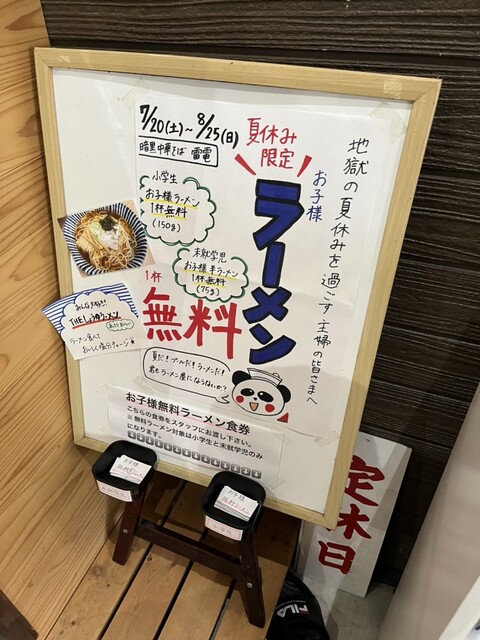 地獄の夏休みを過ごす主婦の皆さまへ
7/20(土)~8/25(日)
暗黒中華そば 雷電
夏休み
限定
お子様
ラーメン
小学生
お子様ラーメン
1杯無料
(150g)
未就学児
お子様半ラーメン
1杯無料
(75g)
1杯
無料
みんな大好き!
THEしょうゆラーメン
ラーメン食べて
おいしく塩分チャージ
夏だ!プールだ!ラーメンだ!
君もラーメン屋にならないか?
お子様無料ラーメン食券
こちらの食券をスタッフにお渡し下さい。
※無料ラーメン対象は小学生と未就学児のみ
になります。
定休日
FILA